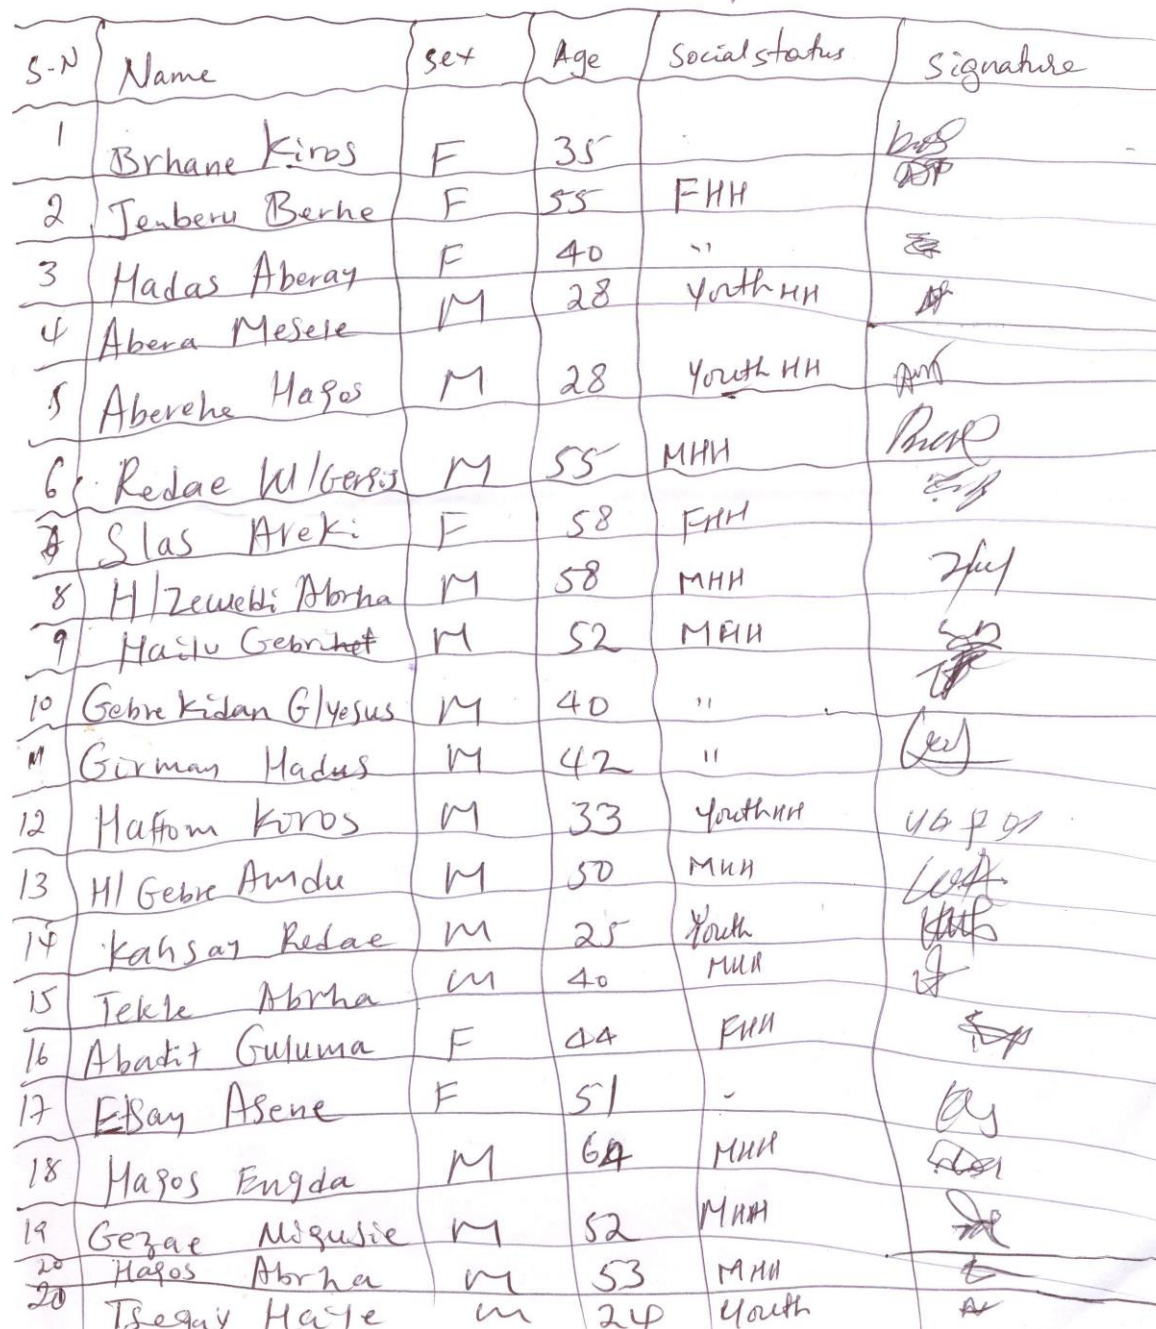 S-N Name Sex Age Social status Signature
1 Brhane Kiros F 35
2 Tenberu Berhe F 55 FHH
3 Hadas Aberay F 40 "
4 Abera Mesele M 28 Youth HH
5 Aberehe Hagos M 28 Youth HH
6 Redae W/Gergis M 55 MHH
Slas Areki F 58 FHH
8 H/Zewebdi Abrha M 58 MHH
9 Hailu Gebrihet M 52 MHH
10 Gebrekidan G/yesus M 40 "
11 Girmay Hadus M 42 "
12 Haftom Kiros M 33 Youth HH
13 H/Gebre Amdu M 50 MHH
14 Kahsay Redae M 25 Youth
15 Tekle Abrha M 40 MHH
16 Abadit Guluma F 44 FHH
17 Etsay Asene F 51 -
18 Hagos Engda M 64 MHH
19 Gezae Nigusie M 52 MHH
20 Hagos Abrha M 53 MHH
20 Tsegay Haile M 24 Youth